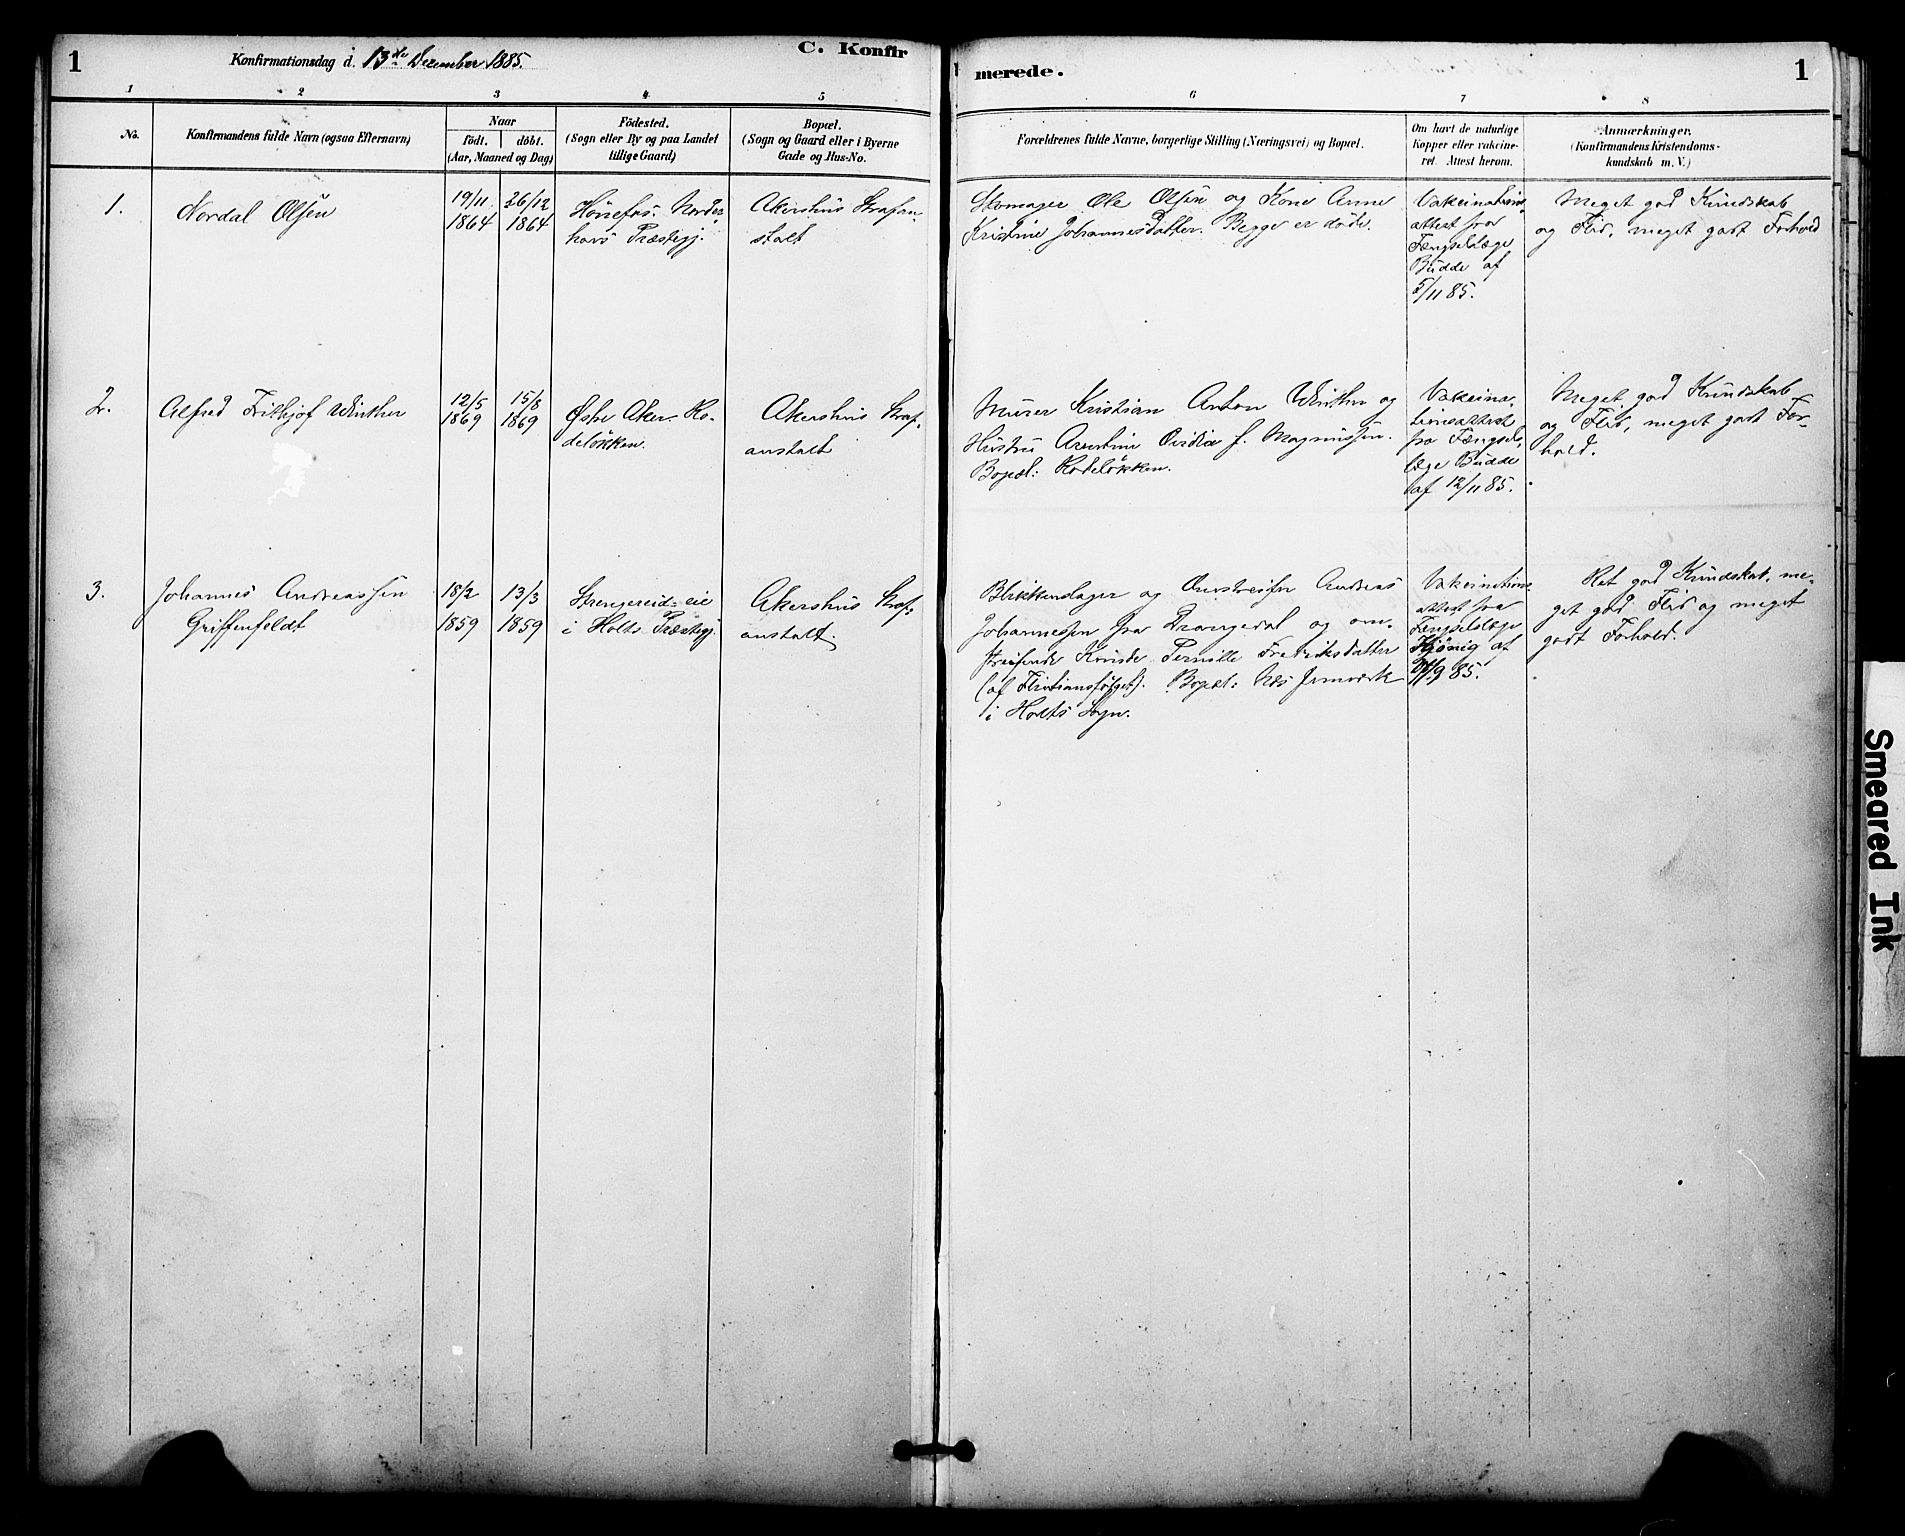 1
Konfirmationsdag d. 13de December 1885.
C. Konfir
merede.
1
1 2 3 4 5 6 7 8
No.
Konfirmandens fulde Navn (ogsaa Efternavn)
Naar
födt. döbt.
(Aar, Maaned og Dag)
Födested.
(Sogn eller By og paa Landet
tillige Gaard)
Bopæl.
(Sogn og Gaard eller i Byerne
Gade og Hus-No.
Forældrenes fulde Navne, borgerlige Stilling (Næringsvei) og Bopæl.
Om havt de naturlige
Kopper eller vakcine-
ret. Attest herom.
Anmærkninger.
(Konfirmandens Kristendoms-
kundskab m. V.)
1.
Nordal Olsen
19/11
1864
26/12
1864
Hönefos. Norder-
hovs Præstegj.
Akershus Strafan-
stalt
Skomager Ole Olsen og Kone Anne
Kristine Johannesdatter. Begge er döde.
Vakcinations-
attest fra
Fængselslæge
Budde af
5/11 85.
Meget god Kundskab
og Flid, meget godt Forhold
2.
Alfred Frithjof Winther
12/5
1869
15/8
1869
Østre Aker. Ro-
delökken.
Akershus Straf-
anstalt
Murer Kristian Anton Winther og
Hustru Arentine Ovidia f. Magnussen.
Bopæl: Rodelökken.
Vakcina-
tionsattest
fra Fængsels-
læge Budde
af 12/11 85.
Meget god Kundskab
og Flid, meget godt For-
hold.
3.
Johannes Andreassen
Griffenfeldt
18/2
1859
13/3
1859
Strengereid-eie
i Holts Præstegj.
Akershus Straf-
anstalt.
Blikkenslager og Omstreifer Andreas
Johannessen fra Drangedal og om-
streifende Kvinde Pernille Fredriksdatter
(af Bopæl: Næs Jernværk
i Holts Sogn.
Vakcinations-
attest fra
Fængselslæge
af
9 85.
Ret god Kundskab, me-
get god Flid og meget
godt Forhold.
Smeared Ink